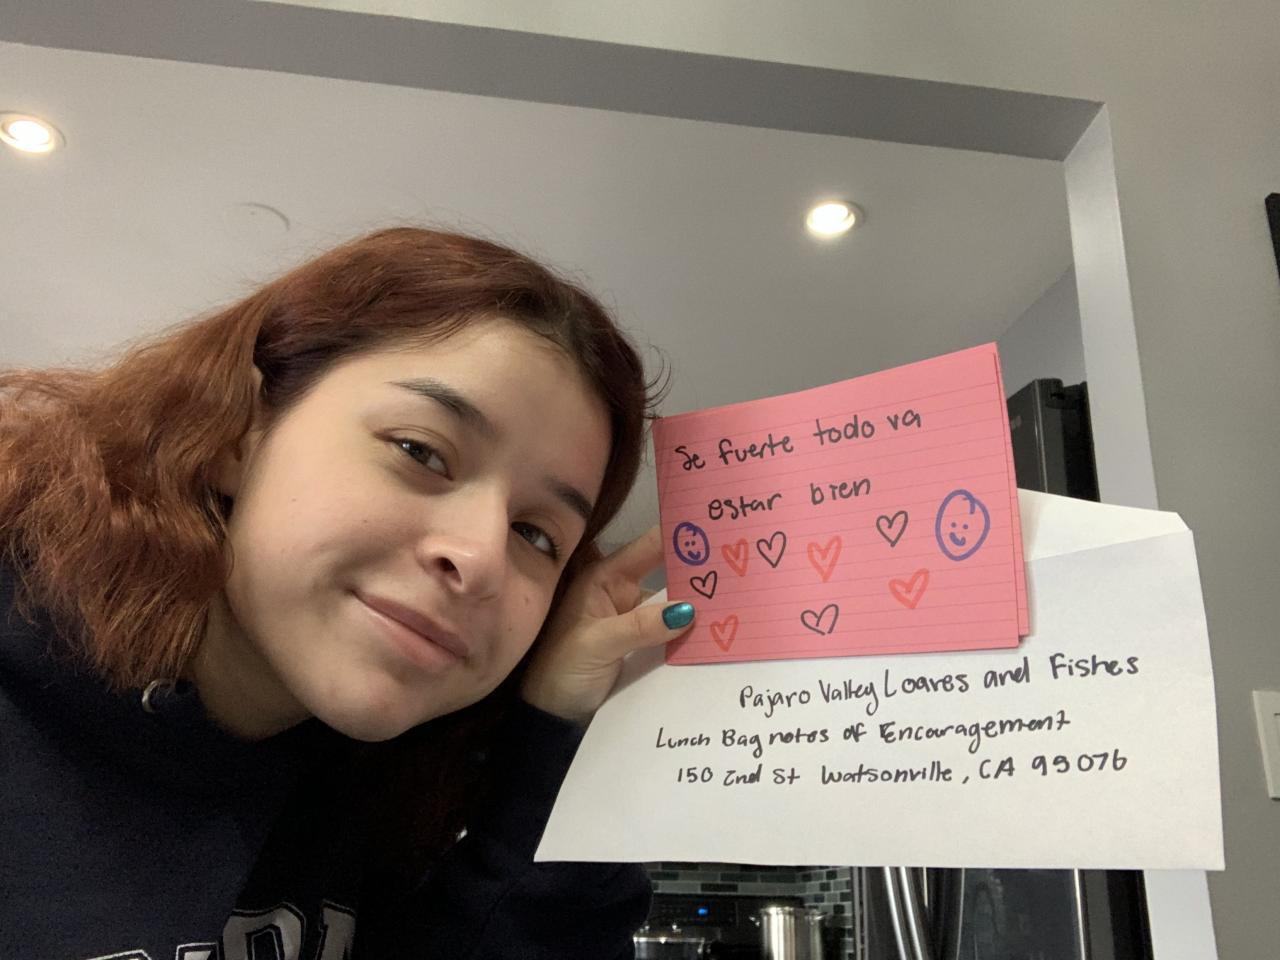 Se fuerte todo va
estar bien
Pajaro Valley Loaves and Fishes
Lunch Bag notes of Encouragement
150 2nd St Watsonville, CA 99076